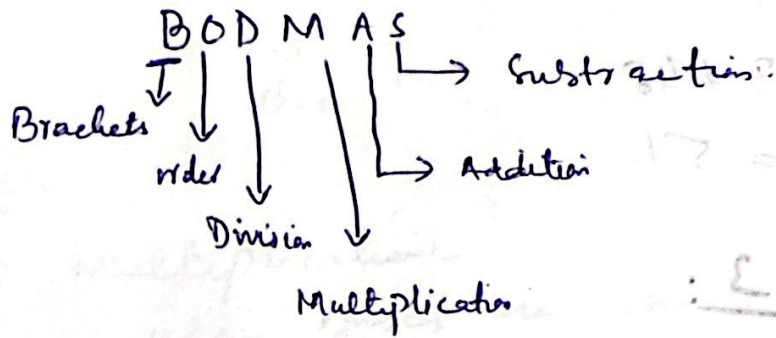 B O D M A S
Substraction.
Brackets
order
Addition
Division
Multiplication
3: